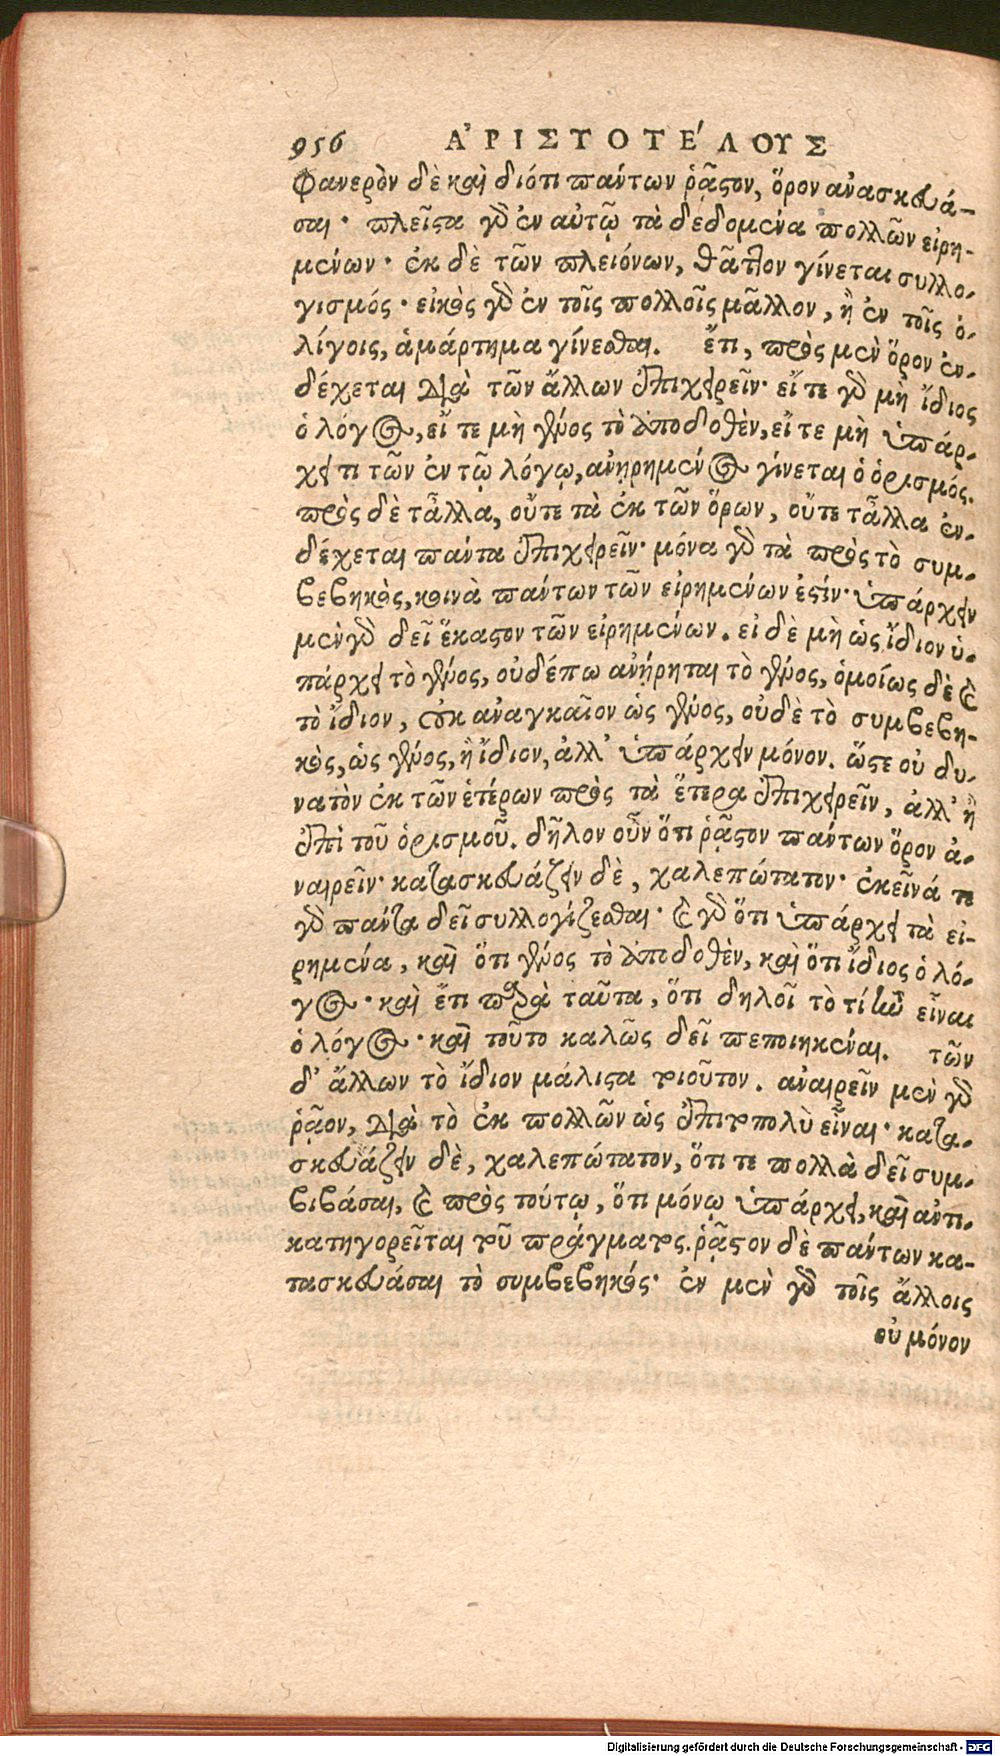 956 ἈΡΙΣΤΟΤΈΛΟΥΣ
Φανερὸν δὲ καὶ διότι πάντων ῥᾷστον, ὅρον ἀνασκευά-
σαι· πλεῖστα γὸ ἐν αὐτῷ τὰ δεδομένα πολλῶν εἰρη-
μένων· ἐκ δὲ τῶν πλειόνων, θᾶττον γίνεται συλλο-
γισμός· εἰκὸς γὸ ἐν τοῖς πολλοῖς μᾶλλον, ἢ ἐν τοῖς ὀ-
λίγοις, ἁμάρτημα γίνεσθαι. ἔτι, πρὸς μὲν ὅρον ἐν-
δέχεται διὰ τῶν ἄλλων ἐπιχειρεῖν· εἴ τε γὸ μὴ ἴδιος
ὁ λόγος, εἴ τε μὴ γένος τὸ ἀποδοθὲν, εἴ τε μὴ ὑπάρ-
χει τι τῶν ἐν τῷ λόγῳ, ἀνῃρημένος γίνεται ὁ ὁρισμός.
πρὸς δὲ τἆλλα, οὔτε τὰ ἐκ τῶν ὅρων, οὔτε τἆλλα ἐν-
δέχεται πάντα ἐπιχειρεῖν· μόνα γὸ τὰ πρὸς τὸ συμ-
βεβηκὸς, κοινὰ πάντων τῶν εἰρημένων ἐστίν· ὑπάρχειν
μὲν γὸ δεῖ ἕκαστον τῶν εἰρημένων. εἰ δὲ μὴ ὡς ἴδιον ὑ-
πάρχει τὸ γένος, οὐδέπω ἀνῄρηται τὸ γένος, ὁμοίως δὲ καὶ
τὸ ἴδιον, οὐκ ἀναγκαῖον ὡς γένος, οὐδὲ τὸ συμβεβη-
κὸς, ὡς γένος, ἢ ἴδιον, ἀλλ' ὑπάρχειν μόνον. ὥστε οὐ δυ-
νατὸν ἐκ τῶν ἑτέρων πρὸς τὰ ἕτερα ἐπιχειρεῖν, ἀλλ' ἢ
ἐπὶ τοῦ ὁρισμοῦ. δῆλον οὖν ὅτι ῥᾷστον πάντων ὅρον ἀ-
ναιρεῖν· κατασκευάζειν δὲ, χαλεπώτατον· ἐκεῖνά τε
γὸ πάντα δεῖ συλλογίζεσθαι· καὶ γὸ ὅτι ὑπάρχει τὰ εἰ-
ρημένα, καὶ ὅτι γένος τὸ ἀποδοθὲν, καὶ ὅτι ἴδιος ὁ λό-
γος· καὶ ἔτι παρὰ ταῦτα, ὅτι δηλοῖ τὸ τί ἦν εἶναι
ὁ λόγος· καὶ τοῦτο καλῶς δεῖ πεποιηκέναι. τῶν
δ' ἄλλων τὸ ἴδιον μάλιστα τοιοῦτον. ἀναιρεῖν μὲν γὸ
ῥᾷον, διὰ τὸ ἐκ πολλῶν ὡς ἐπιτοπολὺ εἶναι· κατα-
σκευάζειν δὲ, χαλεπώτατον, ὅτι τε πολλὰ δεῖ συμ-
βιβάσαι, καὶ πρὸς τούτῳ, ὅτι μόνῳ ὑπάρχει, καὶ ἀντι-
κατηγορεῖται τοῦ πράγματος. ῥᾷστον δὲ πάντων κα-
τασκευάσαι τὸ συμβεβηκός· ἐν μὲν γὸ τοῖς ἄλλοις
οὐ μόνον
Digitalisierung gefördert durch die Deutsche Forschungsgemeinschaft - DFG